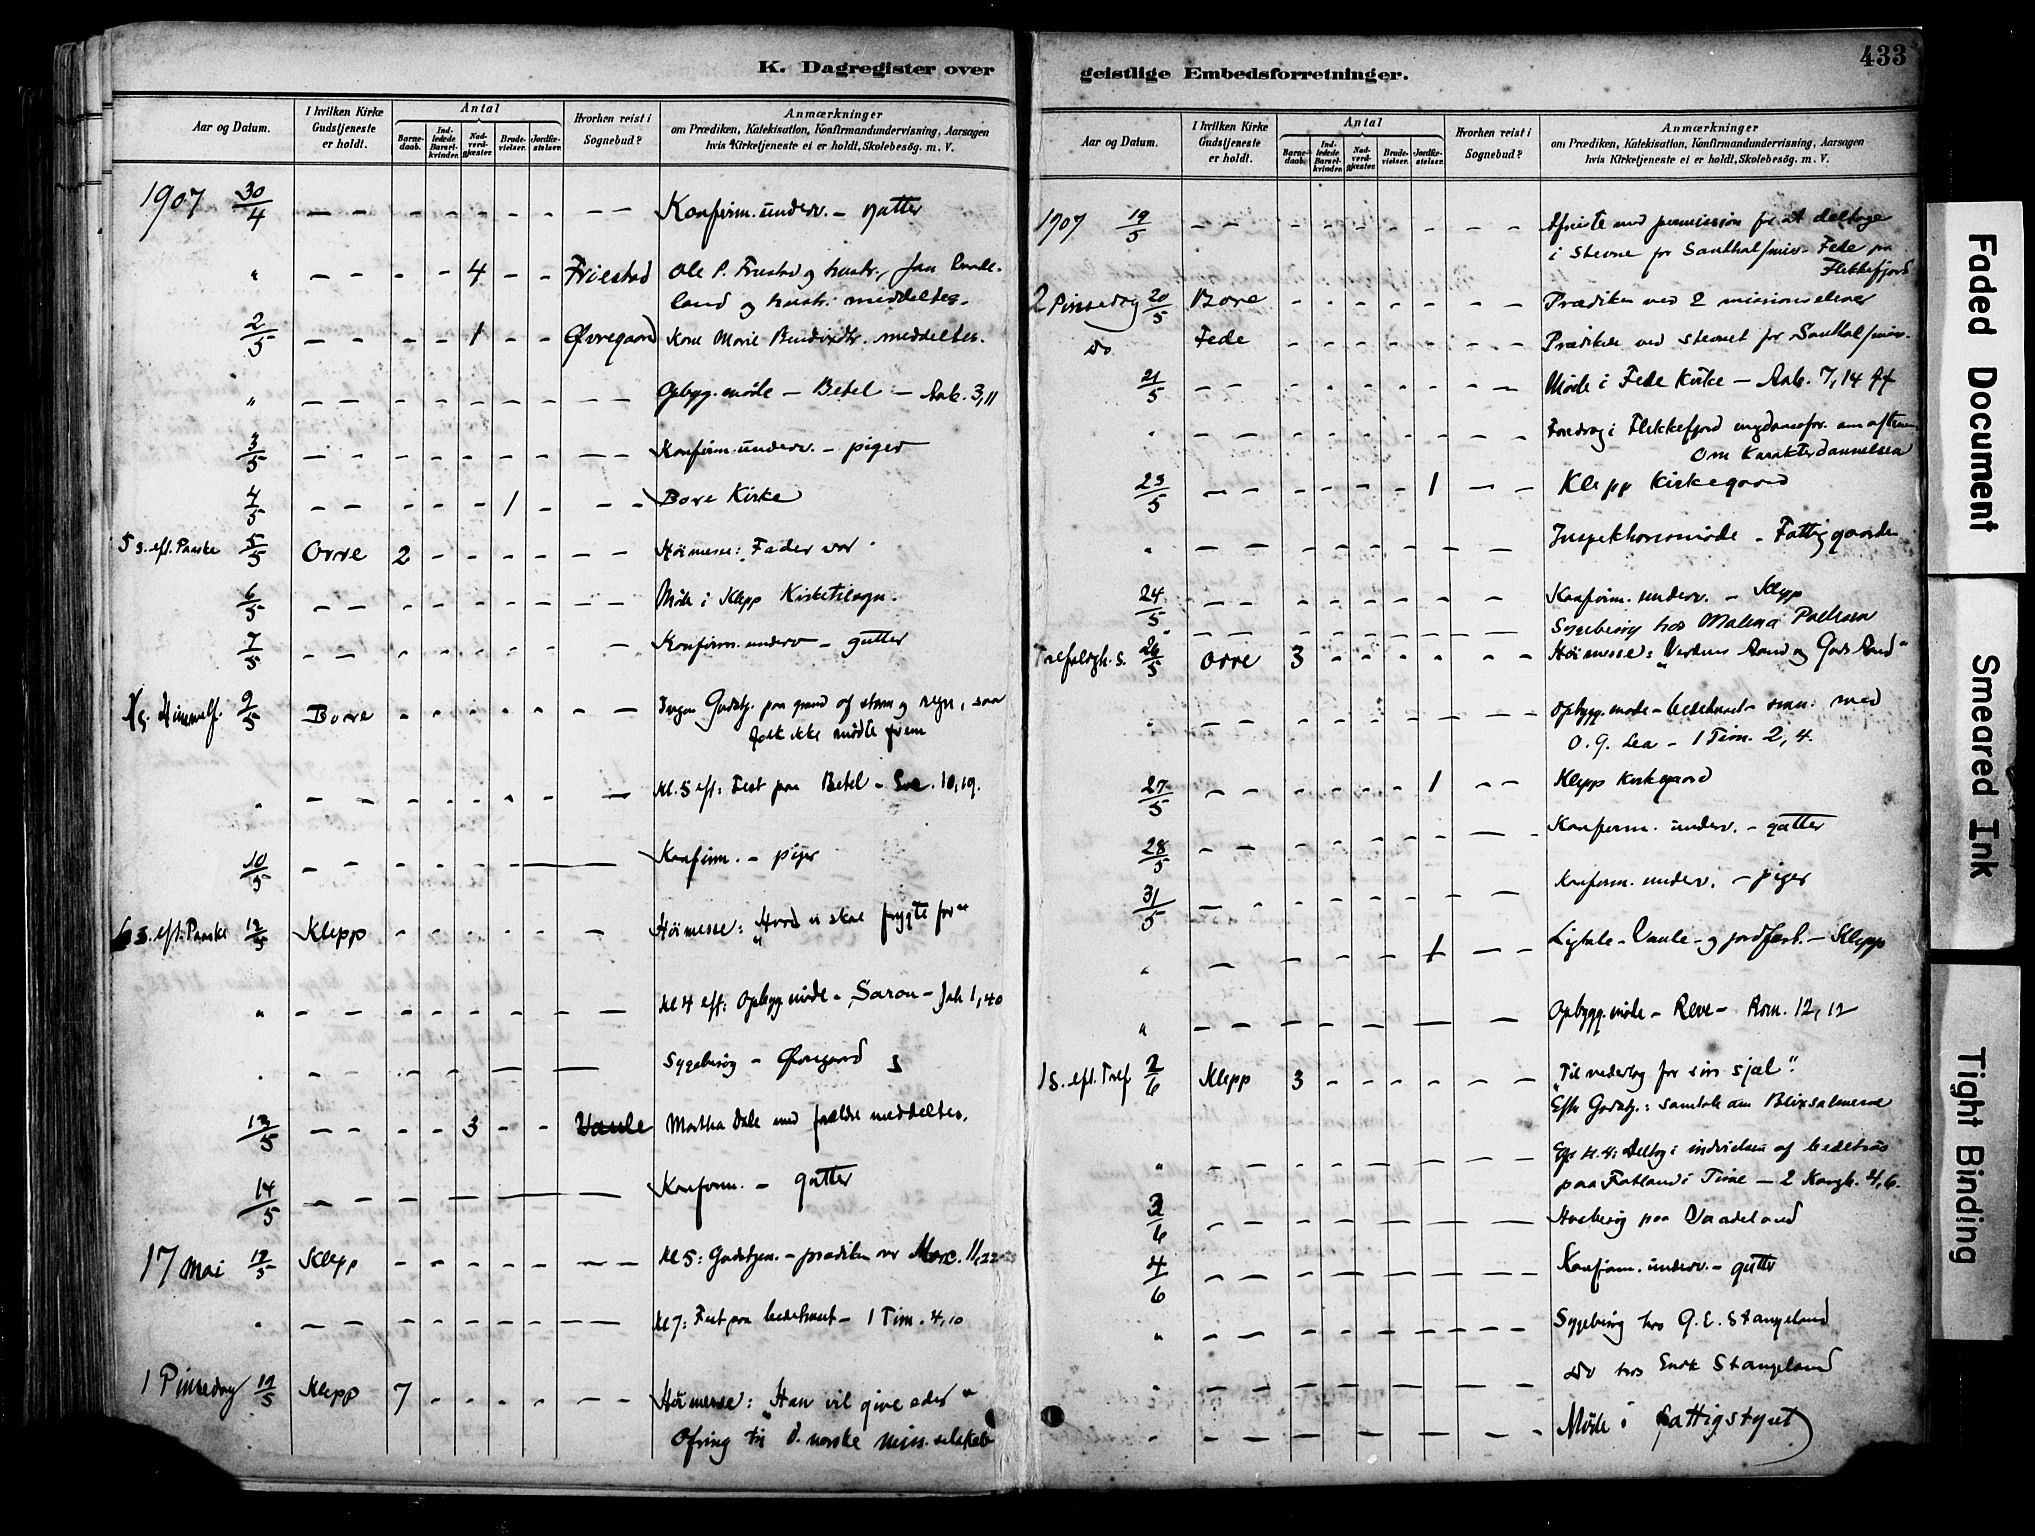 K. Dagregister over
Aar og Datum.
I hvilken Kirke Gudstjeneste er holdt.
Antal
Barnedaab.
Indledede Barselkvinder.
Nadverdgjester.
Brudevielser.
Jordfæstelser.
Hvorhen reist i Sognebud?
Anmærkninger
om Prædiken, Katekisation, Konfirmandundervisning, Aarsagen
hvis Kirketjeneste ei er holdt, Skolebesøg. m. V.
1907 30/4 – – – – – – – – – Konfirm. underv. – gutter
" – – – – 4 – – Friestad Ole P. Friestad og hustr., Jan
land og hustr. meddeltes.
2/5 – – – – 1 – – Øvregaard Marie meddeltes.
" – – – – – – – – – Opbygg. møde – Betel – Aab. 3,11
3/5 – – – – – – – – – Konfirm. underv. – piger
4/5 – – – – – 1 – – – Bore Kirke
5 s. eft. Paaske 5/5 Orre 2 – – – – – – Høimesse: Fader vor
6/5 – – – – – – – – – Møde i Klepp Kirketilsyn.
7/5 – – – – – – – – Konfirm. underv – gutter
Himmelf. 9/5 Bore – – – – – – – Ingen Gudstj. paa grund af storm og regn, saa
folk ikke mødte frem
" – – – – – – – – Kl. 5 eft: Fest paa Betel – 10,19.
10/5 – – – – – – – – Konfirm. – piger
6 s. eft. Paaske 12/5 Klepp – – – – – – – Høimesse: "Hvad vi skal frygte for"
" – – – – – – – – – Kl 4 eft: Opbyg møde – Saron – Joh 1,40
" – – – – – – – Sygebesøg – Øvregaard
13/5 – – – – 3 – – Vaule Martha Dale med forældre meddeltes.
14/5 – – – – – – – Konfirm. – gutter
17 Mai 17/5 Klepp – – – – – – – Kl 5: Gudstjen. – prædiken over Marc. 11,22
" – – – – – – – – – Kl 7: Fest paa bedehuset – 1 Tim. 4,10
1 Pinsedag 19/5 Klepp 7 – – – – – – Høimesse: "Han vil give eder"
Ofring til d. norske miss. selskab
433
geistlige Embedsforretninger.
Aar og Datum.
I hvilken Kirke Gudstjeneste er holdt.
Antal
Barnedaab.
Indledede Barselkvinder.
Nadverdgjester.
Brudevielser.
Jordfæstelser.
Hvorhen reist i Sognebud?
Anmærkninger
om Prædiken, Katekisation, Konfirmandundervisning, Aarsagen
hvis Kirketjeneste ei er holdt, Skolebesøg. m. V.
1907 19/5 – – – – – – – – – Afreiste med permission for at deltage
i Stevne for Santhalmis. Fede pr
Flekkefjord
2 Pinsedag 20/5 Bore – – – – – – – Prædiken ved 2 missionselever
Do Fede – – – – – – – Prædikede ved stevnet for Santhalmis.
21/5 – – – – – – – – – Møde i Fede Kirke – Aab. 7,14 ff
" – – – – – – – – – Foredrag i Flekkefjord ungdomsfor. om aftenen
Om Karakterdannelsen
23/5 – – – – – – 1 – – Klepp Kirkegaard
" – – – – – – – – – Inspektionsmøde – Fattiggaarden
24/5 – – – – – – – – – Konfirm. underv. – Klepp
" – – – – – – – – – Sygebesøg hos Malena
Trefoldgh. s. 26/5 Orre 3 – – – – – – Høimesse: "Verdens Aand og Guds Aand"
" – – – – – – – – – Opbygg. møde – bedehuset – smn. med
O. G. Lea – 1 Tim. 2,4.
27/5 – – – – – – 1 – – Klepp Kirkegaard
28/5 – – – – – – – – – Konfirm. underv. – gutter
31/5 – – – – – – – – – Konfirm. underv. – piger
" – – – – – 1 – – Ligtale – Vaule – og jordfæst. – Klepp
" – – – – – – – – Opbygg. møde – Reve – Rom. 12,12
1 s. eft. Tref 2/6 Klepp 3 – – – – – – "Til vederlag for sin sjæl".
Eft Gudstj.: samtale om Blixsalmerne
" – – – – – – – – – Eft kl. 4: Deltog i indvielsen af bedehus
paa Fotland i Time – 2 Kongb. 4,6.
3/6 – – – – – – – – – Husbesøg paa Vaadeland
4/6 – – – – – – – – – Konfirm. underv. – gutter
" – – – – – – – – – Sygebesøg hos G. E. Stangeland
" – – – – – – – – Do hos Enok Stangeland
" – – – – – – – – – Møde i fattigstyret
Faded Document
Smeared Ink
Tight Binding